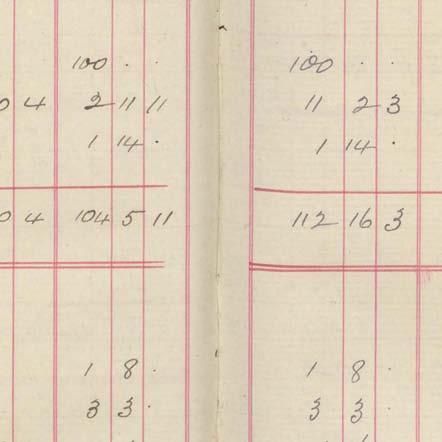 100 . .
0 4 2 11 11
1 14 .
0 4 104 5 11
1 8 .
3 3 .
100 . .
11 2 3
1 14 .
112 16 3
1 8 .
3 3 .